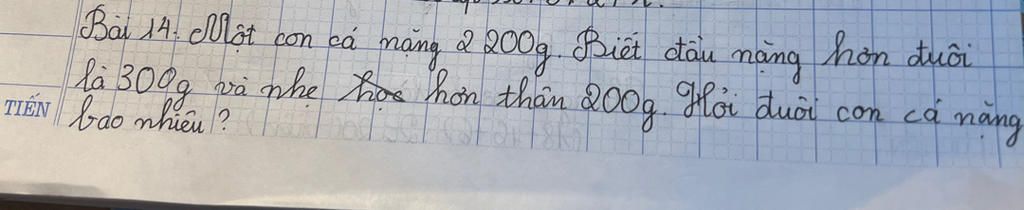 Bài 14: Một con cá nặng 2 200g. Biết đầu nặng hơn đuôi
là 300g và nhẹ hơn thân 200g. Hỏi đuôi con cá nặng
TIẾN
bao nhiêu?